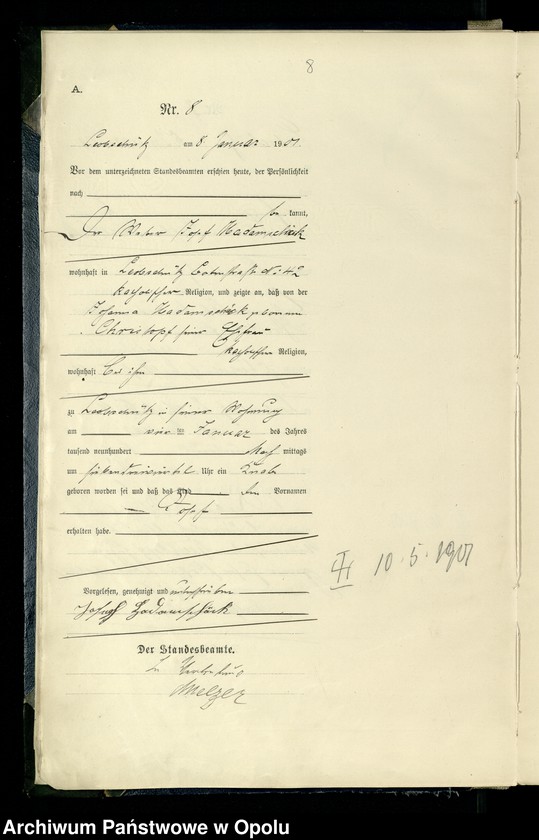 8
A.
Nr. 8
Leobschütz am 8 Januar 1901.
Vor dem unterzeichneten Standesbeamten erschien heute, der Persönlichkeit
nach
be kannt,
Der Weber Josef
wohnhaft in Leobschütz No 42
katholischer Religion, und zeigte an, daß von der
Johanna geborenen
Christoph seiner Ehefrau
katholischer Religion,
wohnhaft bei ihm
zu Leobschütz in seiner Wohnung
am vier ten Januar des Jahres
tausend neunhundert Nach mittags
um Uhr ein Knabe
geboren worden sei und daß das Kind den Vornamen
Josef
erhalten habe.
Vorgelesen, genehmigt und unterschrieben
Joseph Hadamscheck
Der Standesbeamte.
In Vertretung
Melzer
10.5.1901
Archiwum Państwowe w Opolu